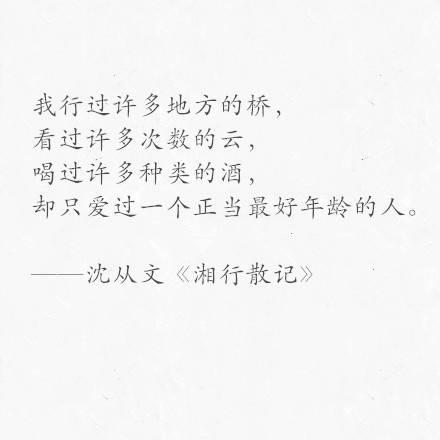 我行过许多地方的桥，
看过许多次数的云，
喝过许多种类的酒，
却只爱过一个正当最好年龄的人。
——沈从文《湘行散记》